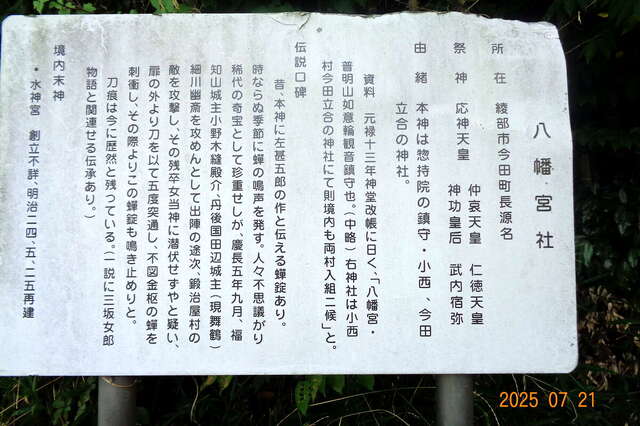 八幡宮社
所在 綾部市今田町長源名
祭神 応神天皇 仲哀天皇 仁徳天皇
神功皇后 武内宿弥
由緒 本神は惣持院の鎮守・小西、今田
立合の神社。
資料 元禄十三年神堂改帳に曰く、「八幡宮・
普明山如意輪観音鎮守也。(中略)右神社は小西
村今田立合の神社にて則境内も両村入組二候」と。
伝説口碑
昔、本神に左甚五郎の作と伝える蟬錠あり。
時ならぬ季節に蟬の鳴声を発す。人々不思議がり
稀代の奇宝として珍重せしが、慶長五年九月、福
知山城主小野木縫殿介、丹後国田辺城主(現舞鶴)
細川幽斎を攻めんとして出陣の途次、鍛治屋村の
敵を攻撃し、その残卒女当神に潜伏せずやと疑い、
扉の外より刀を以て五度突通し、不図金枢の蟬を
刺衝し、その際よりこの蟬錠も鳴き止めりと。
刀痕は今に歴然と残つている。(一説に三坂女郎
物語と関連せる伝承あり。)
境内末神
・水神宮 創立不詳、明治二四、五、二五再建
2025 07 21